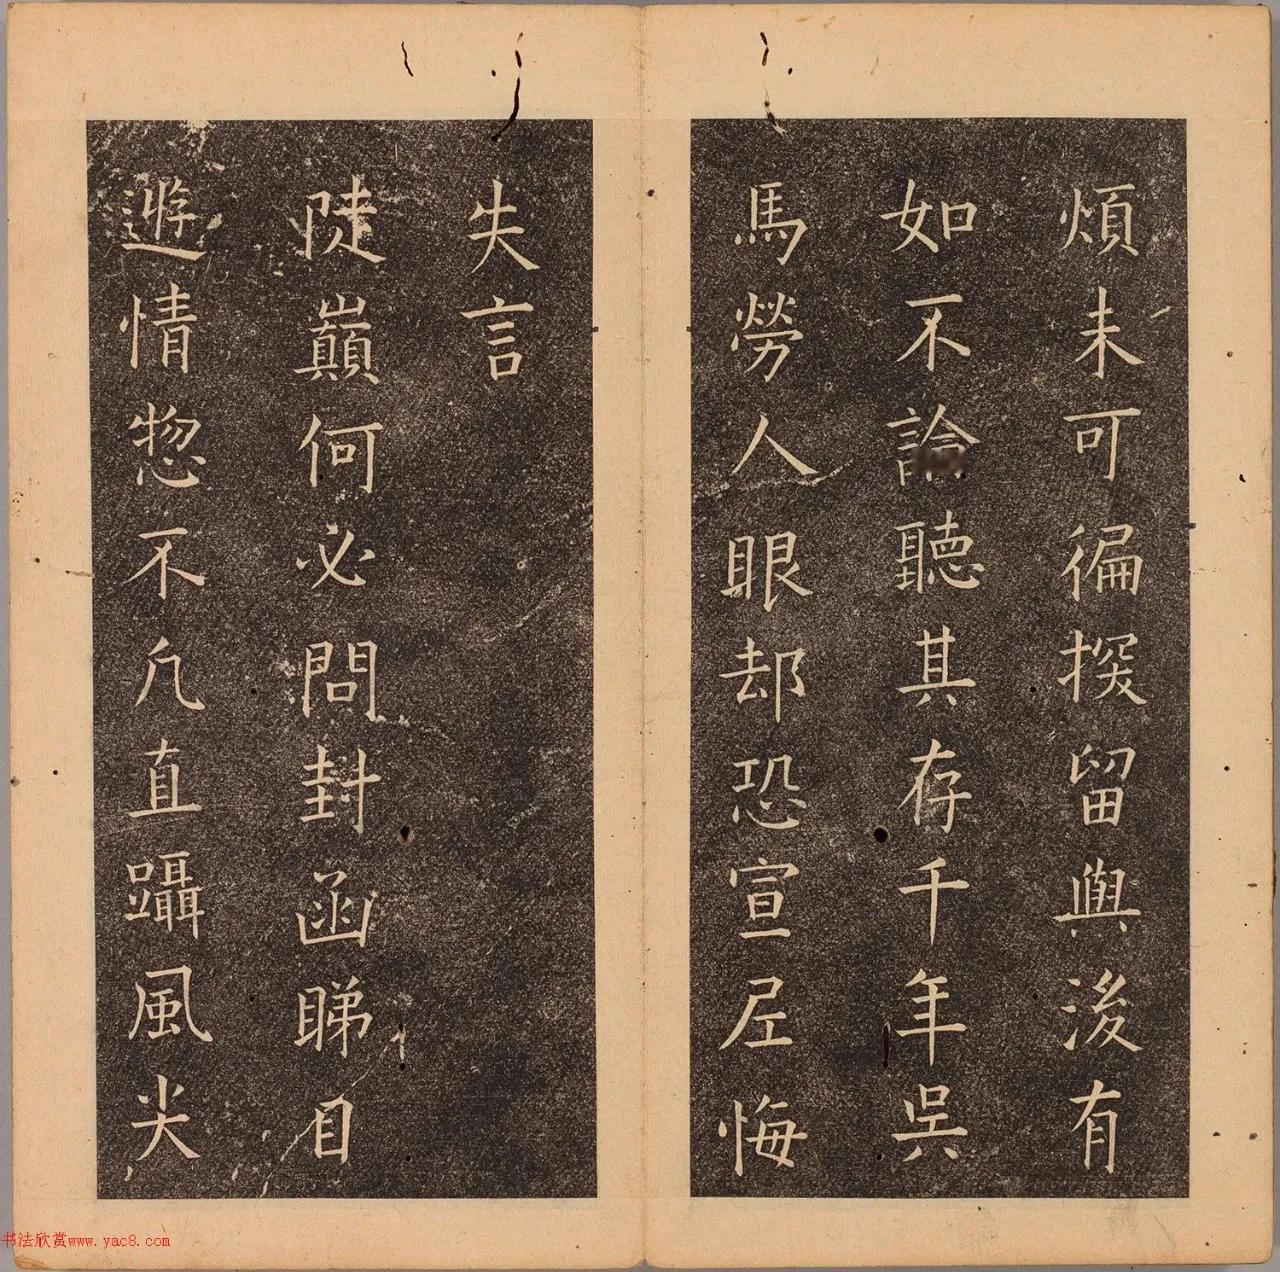 煩未可徧探留與後有
如不論聽其存千年吳
馬勞人眼却恐宣尼悔
失言
陡巔何必問封函睇目
遊情惣不凢直躡風尖
书法欣赏www.yac8.com